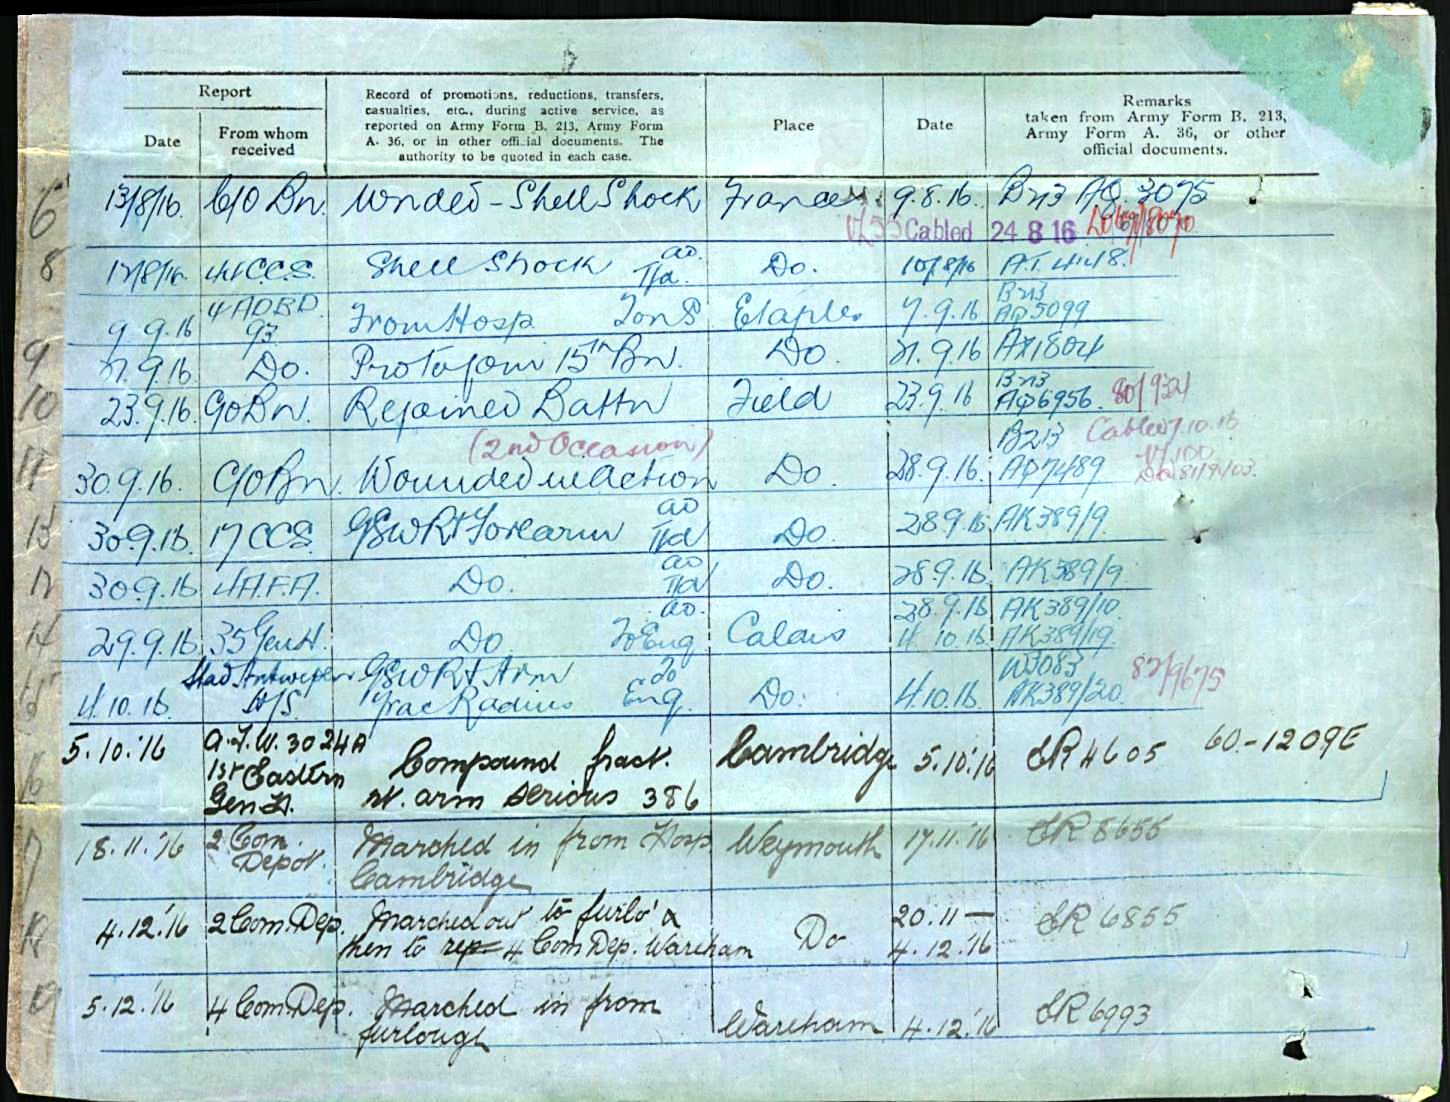 Report
Date
From whom received
Record of promotions, reductions, transfers,
casualties, etc., during active service, as
reported on Army Form B. 213, Army Form
A. 36, or in other official documents. The
authority to be quoted in each case.
Place
Date
Remarks
taken from Army Form B. 213,
Army Form A. 36, or other
official documents.
6 13/8/16. C/O Bn. Wnded - Shell Shock France 9.8.16. B213 AQ 3075
Cabled 24 8 16
8 12/8/16 44 C.C.S. Shell Shock Do. 10/8/16 A.T. 4448.
4 ADBD B213
9.9.16 From Hosp Etaples 7.9.16 AQ5099
9 21.9.16 Do. Proto join 15th Bn. Do. 21.9.16 AX1804
B213
10 23.9.16 C/O Bn. Rejoined Battn Field 23.9.16 AQ6956. 80/9321
(2nd Occasion) B213 Cabled 7.10.16
11 30.9.16. C/O Bn. Wounded in Action Do. 28.9.16. AQ7489
13 30.9.16. 17 CCS. GSW Rt Forearm Do. 28.9.16 AK389/9.
12 30.9.16 4 A.F.A. Do. Do. 28.9.16. AK389/9.
28.9.16 AK389/10.
14 29.9.16 35 Gen H. Do To Eng Calais 4.10.16. AK389/19.
Stad Antwerpen GSW Rt Arm To W3083 82/9675
4.10.16. H/S. Frac Radius Eng. Do. 4.10.16 AK389/20.
5.10.'16 A.F.W. 3024A Compound fract. Cambridge 5.10.'16 SR 4605 60-1209E
1st Eastern
Gen H. rt. arm serious 386
18.11.'16 2 Com. Depot. Marched in from Hosp Weymouth 17.11.'16
Cambridge
4.12.'16 2 Com Dep. Marched out to furlo' & Do 20.11 —
then to rep 4 Com Dep. Wareham 4.12.'16 SR 6855
5.12.'16 4 Com Dep. Marched in from
furlough Wareham 4.12.'16 SR 6993